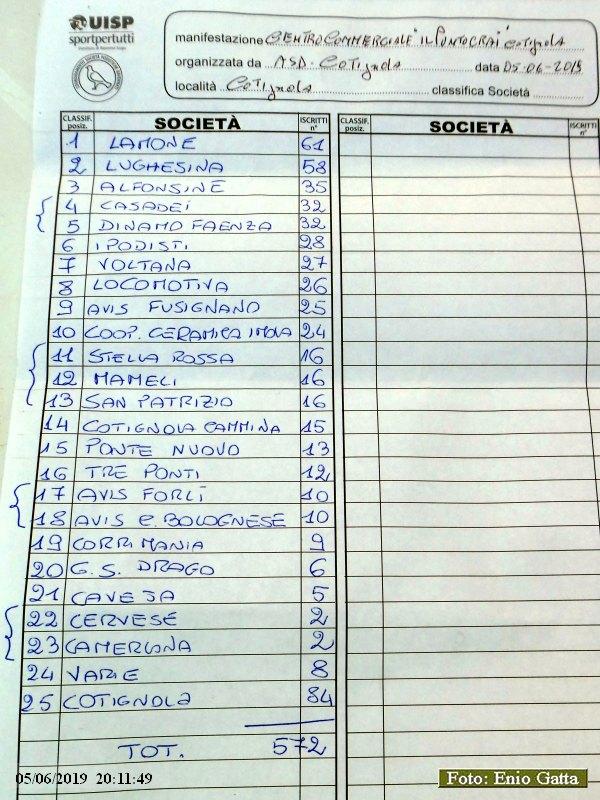 UISP
sportpertutti
manifestazione CENTRO COMMERCIALE "IL PONTACCIAI" Cotignola
organizzata da ASD. Cotignola data 05-06-2019
località Cotignola classifica Società
CLASSIF. posiz. SOCIETÀ ISCRITTI n° CLASSIF. posiz. SOCIETÀ ISCRITTI n°
1 LAMONE 61
2 LUGHESINA 58
3 ALFONSINE 35
4 CASADEI 32
5 DINAMO FAENZA 32
6 IPODISTI 28
7 VOLTANA 27
8 LOCOMOTIVA 26
9 AVIS FUSIGNANO 25
10 COOP. CERAMICA IMOLA 24
11 STELLA ROSSA 16
12 MAMELI 16
13 SAN PATRIZIO 16
14 COTIGNOLA CAMMINA 15
15 PONTE NUOVO 13
16 TRE PONTI 12
17 AVIS FORLÌ 10
18 AVIS C. BOLOGNESE 10
19 CORRIMANIA 9
20 G.S. DRAGO 6
21 CAVEJA 5
22 CERVESE 2
23 CAMERLONA 2
24 VARIE 8
25 COTIGNOLA 84
TOT. 572
05/06/2019 20:11:49
Foto: Enio Gatta